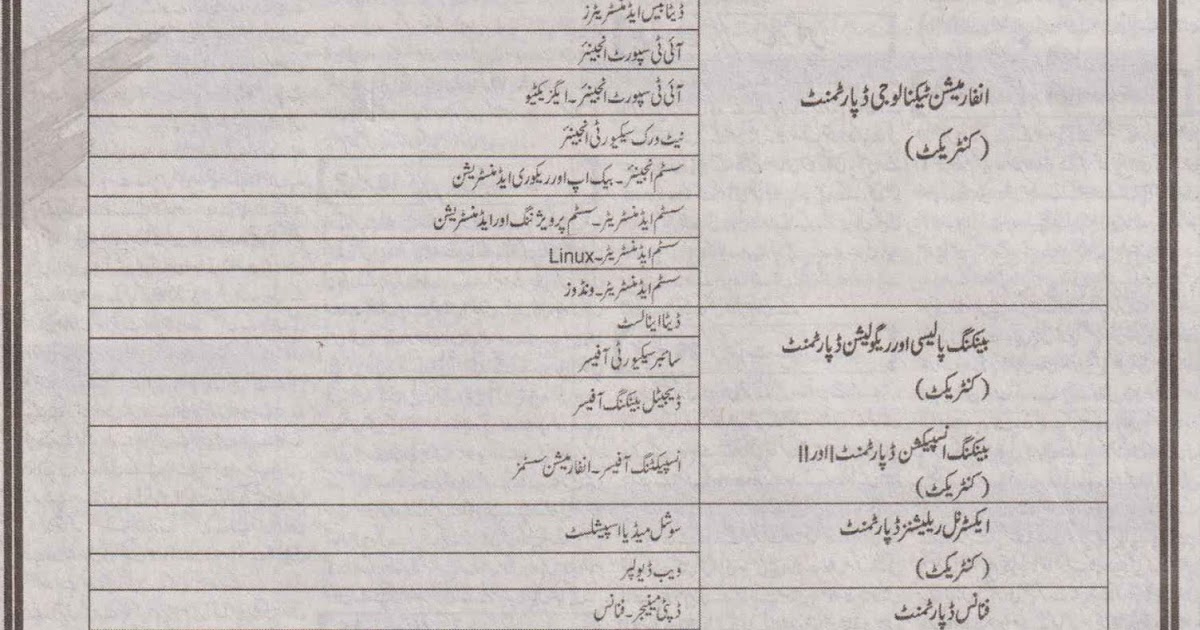 ڈیٹا بیس ایڈمنسٹریٹرز
آئی ٹی سپورٹ انجینئر
انفارمیشن ٹیکنالوجی ڈپارٹمنٹ
(کنٹریکٹ)
آئی ٹی سپورٹ انجینئر۔ایگزیکٹیو
نیٹ ورک سیکیورٹی انجینئر
سسٹم انجینئر۔بیک اپ اور ریکوری ایڈمنسٹریشن
سسٹم ایڈمنسٹریٹر۔سسٹم پرویژننگ اور ایڈمنسٹریشن
سسٹم ایڈمنسٹریٹر۔Linux
سسٹم ایڈمنسٹریٹر۔ونڈوز
بینکنگ پالیسی اور ریگولیشن ڈپارٹمنٹ
(کنٹریکٹ)
ڈیٹا اینالسٹ
سائبر سیکیورٹی آفیسر
ڈیجیٹل بینکنگ آفیسر
بینکنگ انسپیکشن ڈپارٹمنٹ I اور II
(کنٹریکٹ)
انسپیکٹنگ آفیسر۔انفارمیشن سسٹمز
ایکسٹرنل ریلیشنز ڈپارٹمنٹ
(کنٹریکٹ)
سوشل میڈیا اسپیشلسٹ
ویب ڈیولپر
فنانس ڈپارٹمنٹ
ڈپٹی مینیجر۔فنانس